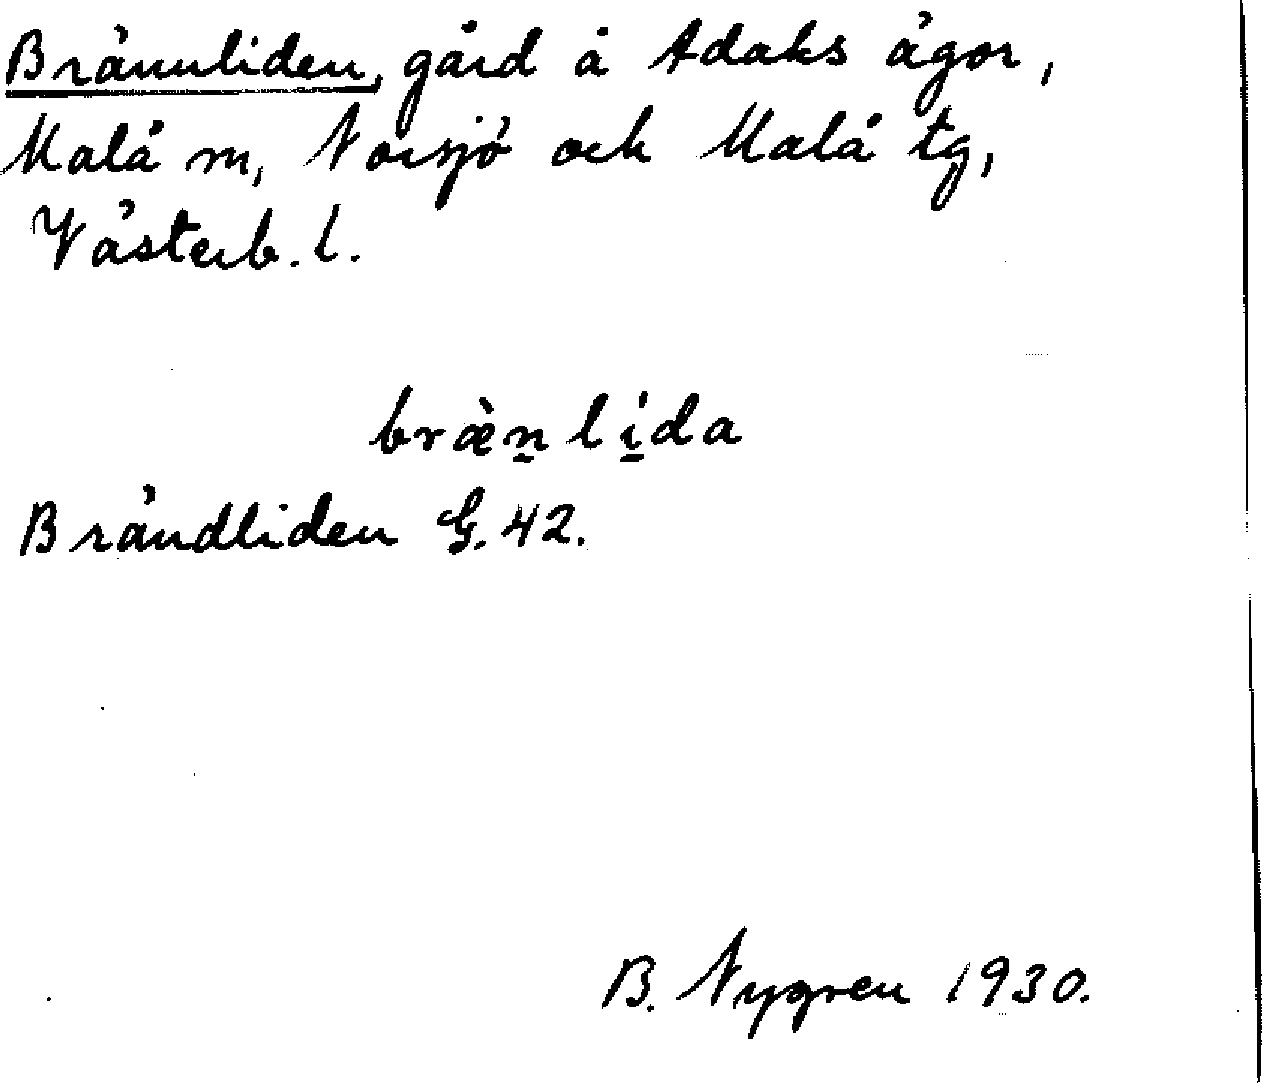 Brännliden, gård å Adaks ägor,
Malå sn, Norsjö och Malå tg,
Västerb. l.
bræ̀n̠ lí̠da
Brändliden G. 42.
B. Nygren 1930.